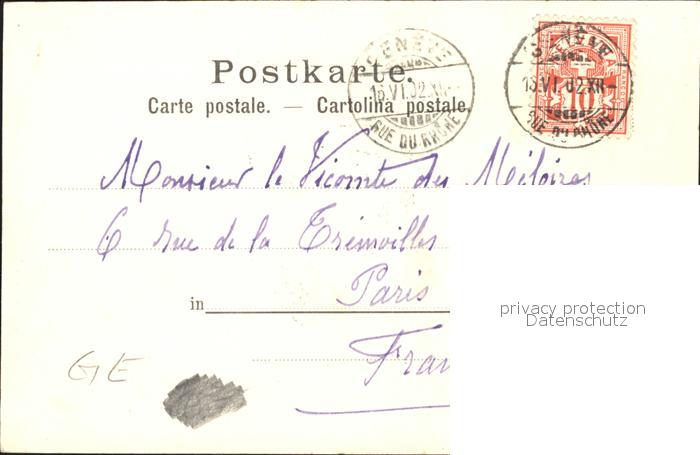 Postkarte.
Carte postale. — Cartolina postale.
GENÈVE
13.VI.02.XII-
RUE DU RHÔNE
GENÈVE
13.VI.02.XII-
RUE DU RHÔNE
10
Monsieur le Vicomte des Méloizes
6 rue de la Trémoilles
in Paris
Fran
privacy protection
Datenschutz
GE